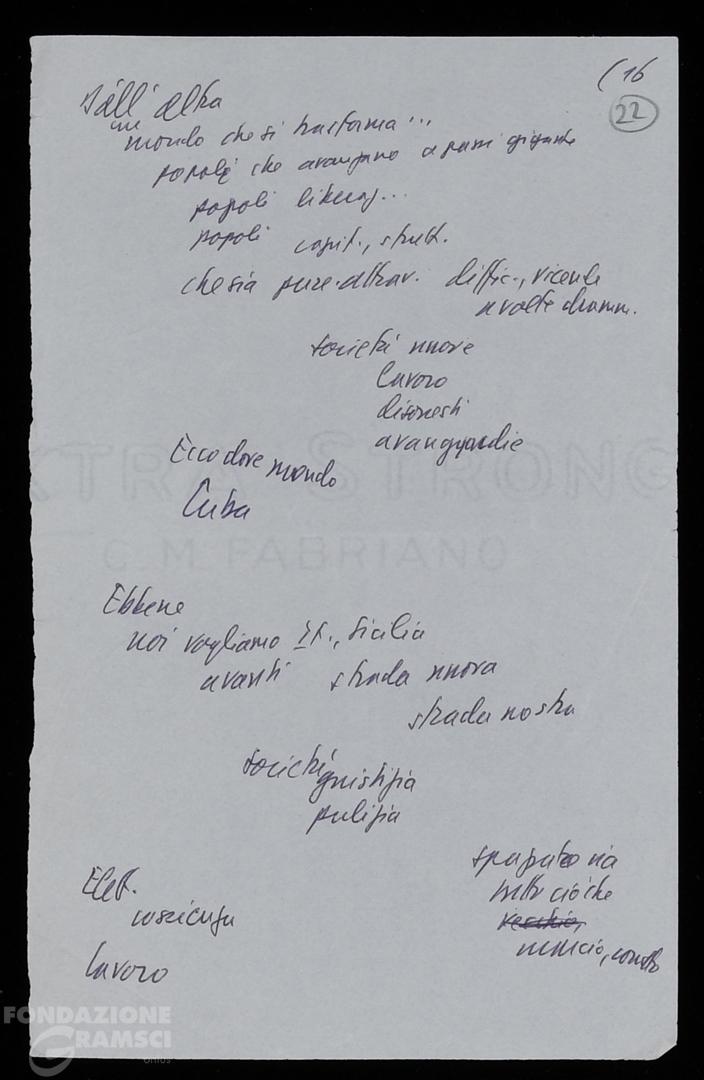 (16
22
Dall'altra
un
mondo che si trasforma...
popoli che avanzano a passi gigante
popoli liberaz...
popoli capit., strutt.
che sia pure attrav. diffic., vicende
a volte dramm.
società nuove
lavoro
disonesti
avanguardie
Ecco dove mondo
Cuba
EXTRA STRONG
C. M. FABRIANO
Ebbene
noi vogliamo It., Sicilia
avanti strada nuova
strada nostra
società giustizia
pulizia
spazzato via
tutto ciò che
vecchio,
marcio, corrotto
Elet.
coscienza
Lavoro
FONDAZIONE
GRAMSCI
onlus